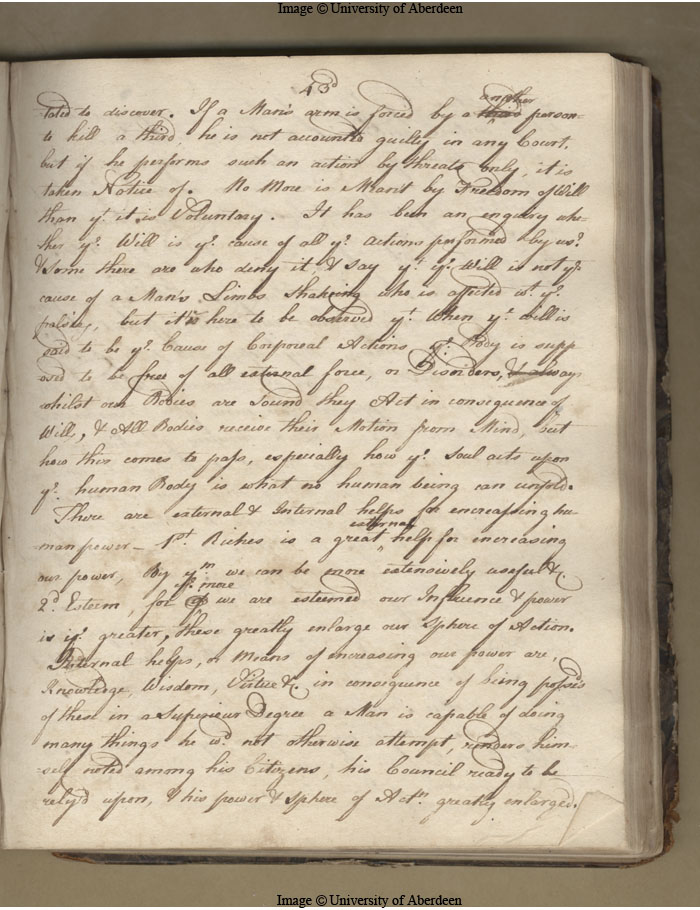 Image © University of Aberdeen
43
tated to discover. If a Man's arm is forced by a third another person
to kill a third, he is not accounted guilty in any Court.
but if he performs such an action by threats only, it is
taken Notice of. No More is Meant by Freedom of Will
than yt. it is Voluntary. It has been an enquiry whe-
ther ye. Will is ye. cause of all ye. actions performed by us?
& Some there are who deny it, & say yt. ye. Will is not ye.
cause of a Man's Limbs Shakeing who is affected wt. ye.
palsie, but it is here to be observed yt. When ye. will is
said to be ye. Cause of Corporeal Actions ye. Body is supp
osed to be free of all external force, or Disorders, & alway
whilst our Bodies are Sound they Act in consequence of
Will, & All Bodies receive their Motion from Mind, but
how this comes to pass, especially how ye. Soul acts upon
ye. human Body is what no human being can unfold.
There are external & Internal helps for encreassing hu-
man power_ 1st. Riches is a great external help for encreasing
our power, By ym. we can be more extensively useful &c.
2d. Esteem, for ye. more we are esteemed our Influence & power
is ye. greater, These greatly enlarge our Sphere of Action.
Internal helps, or Means of encreasing our power are,
Knowledge, Wisdom, Virtue &c. in consequence of being possess'd
of these in a Superiour Degree a Man is capable of doing
many things he wd. not otherwise attempt, renders him-
self noted among his Citizens, his Council ready to be
rely'd upon, & his power & sphere of Actn. greatly enlarged.
Image © University of Aberdeen